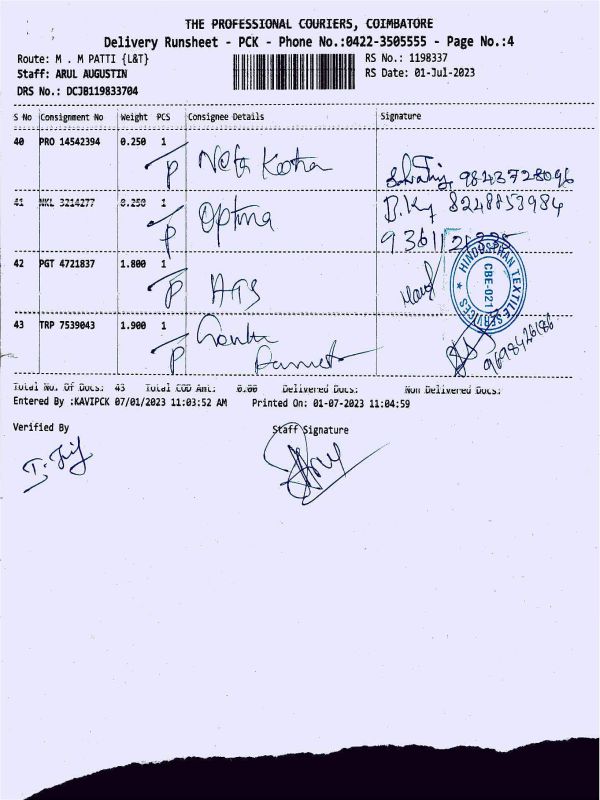 THE PROFESSIONAL COURIERS, COIMBATORE
Delivery Runsheet - PCK - Phone No.:0422-3505555 - Page No.:4
Route: M . M PATTI {L&T}
RS No.: 1198337
Staff: ARUL AUGUSTIN
RS Date: 01-Jul-2023
DRS No.: DCJB119833704
S No Consignment No Weight PCS Consignee Details Signature
40 PRO 14542394 0.250 1
P
9843728096
41 NKL 3214277 0.250 1
P Optima
8248853984
42 PGT 4721837 1.800 1
P ATS
HINDUSTHAN TEXTILE SERVICES
CBE-021
43 TRP 7539043 1.900 1
P
9698426186
Total No. Of Docs: 43 Total COD Amt: 0.00 Delivered Docs: Non Delivered Docs:
Entered By :KAVIPCK 07/01/2023 11:03:52 AM Printed On: 01-07-2023 11:04:59
Verified By Staff Signature